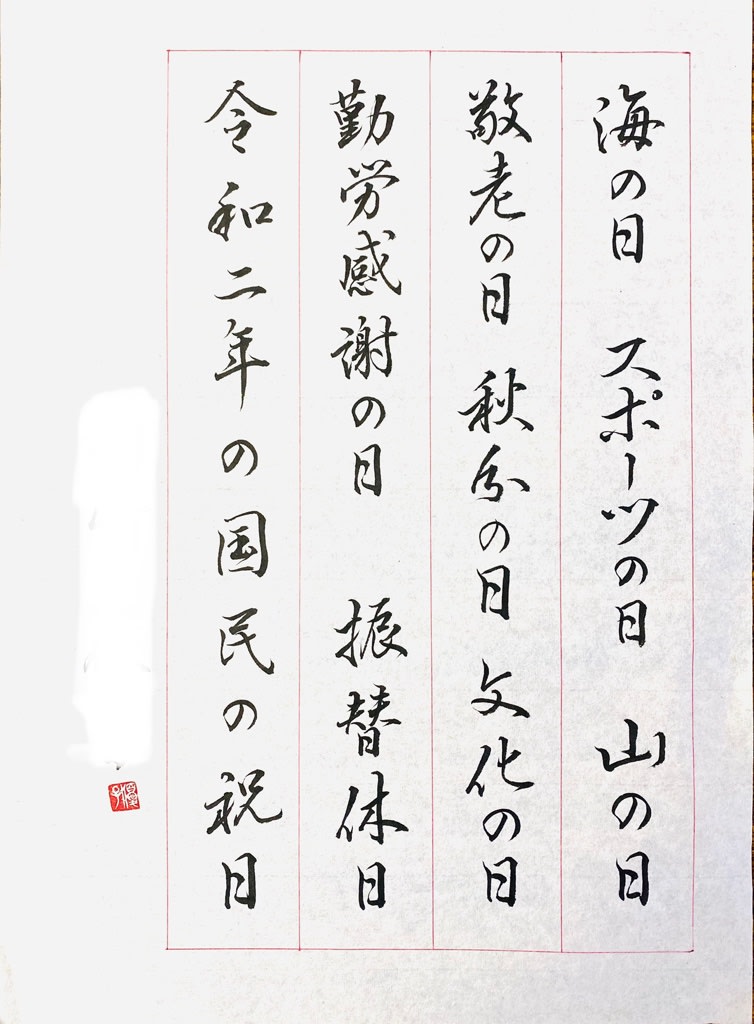 海の日 スポーツの日 山の日
敬老の日 秋分の日 文化の日
勤労感謝の日 振替休日
令和二年の国民の祝日